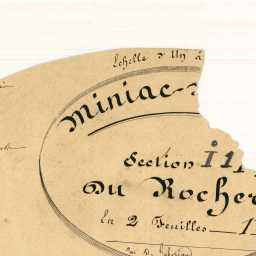 Echelle d'Un à
Miniac-
Section i 1
Du Rocher
En 2 Feuilles_ 1